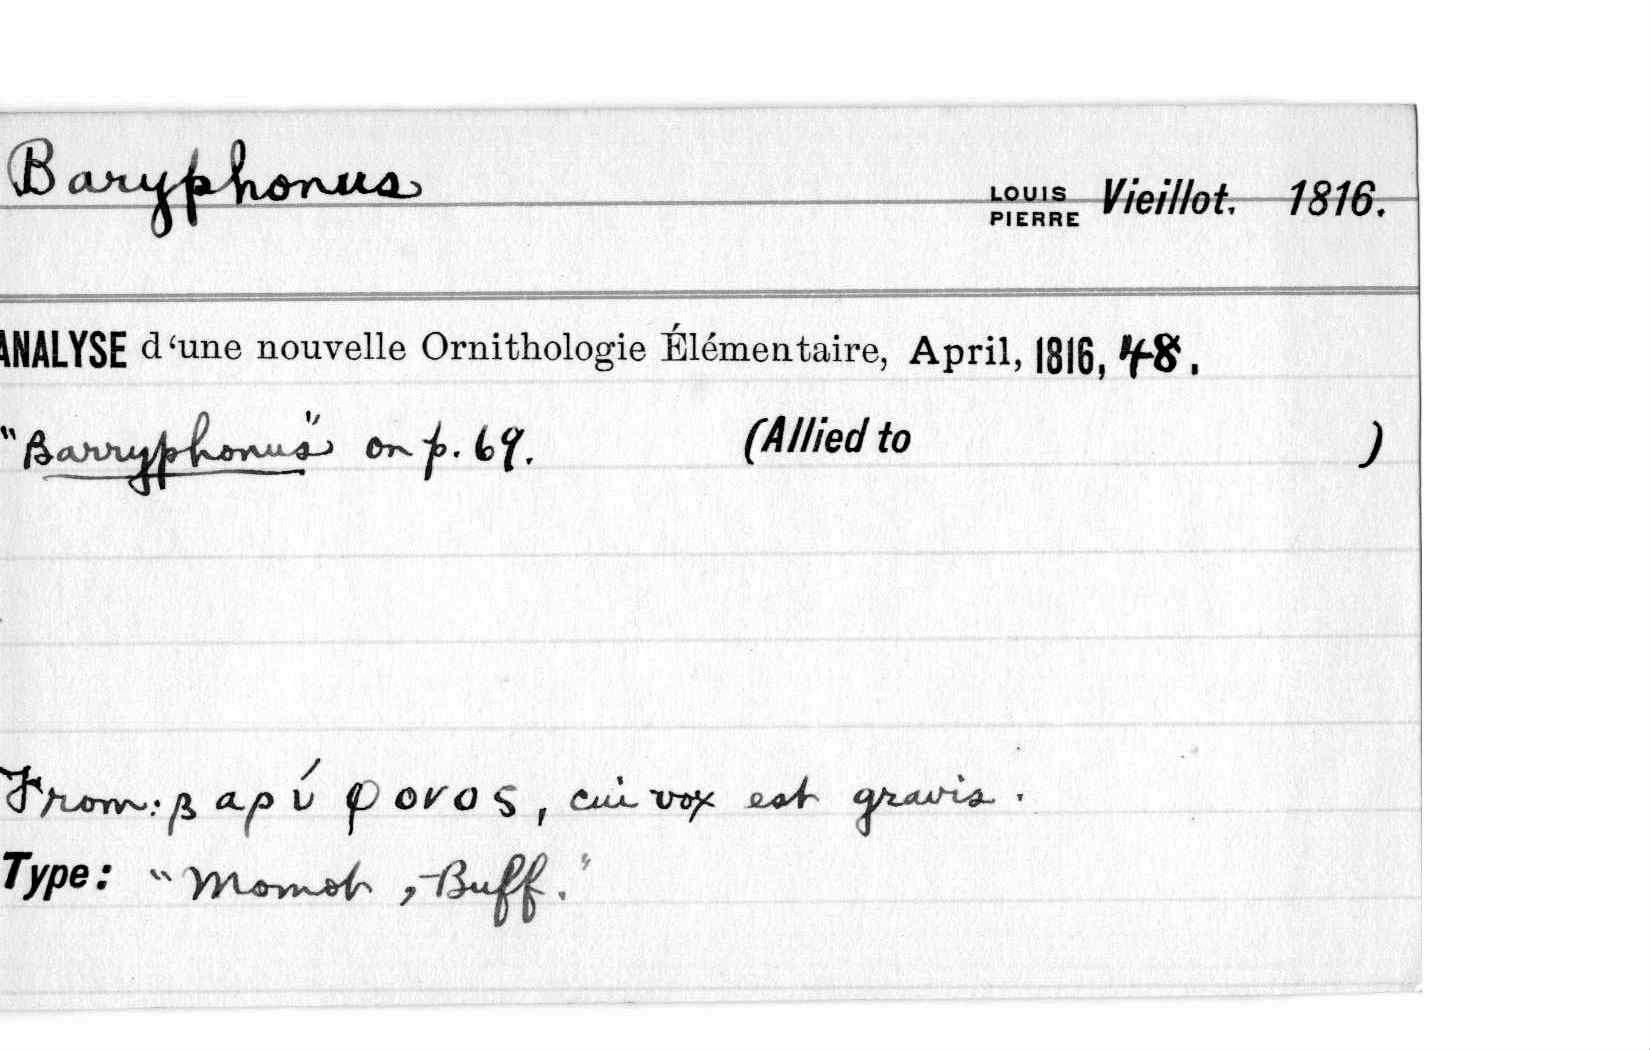 Baryphonus
LOUIS PIERRE Vieillot. 1816.
ANALYSE d'une nouvelle Ornithologie Élémentaire, April, 1816, 48.
"Barryphonus" on p. 69. (Allied to )
From: βαρύφονος, cui vox est gravis.
Type: "Momot, Buff."